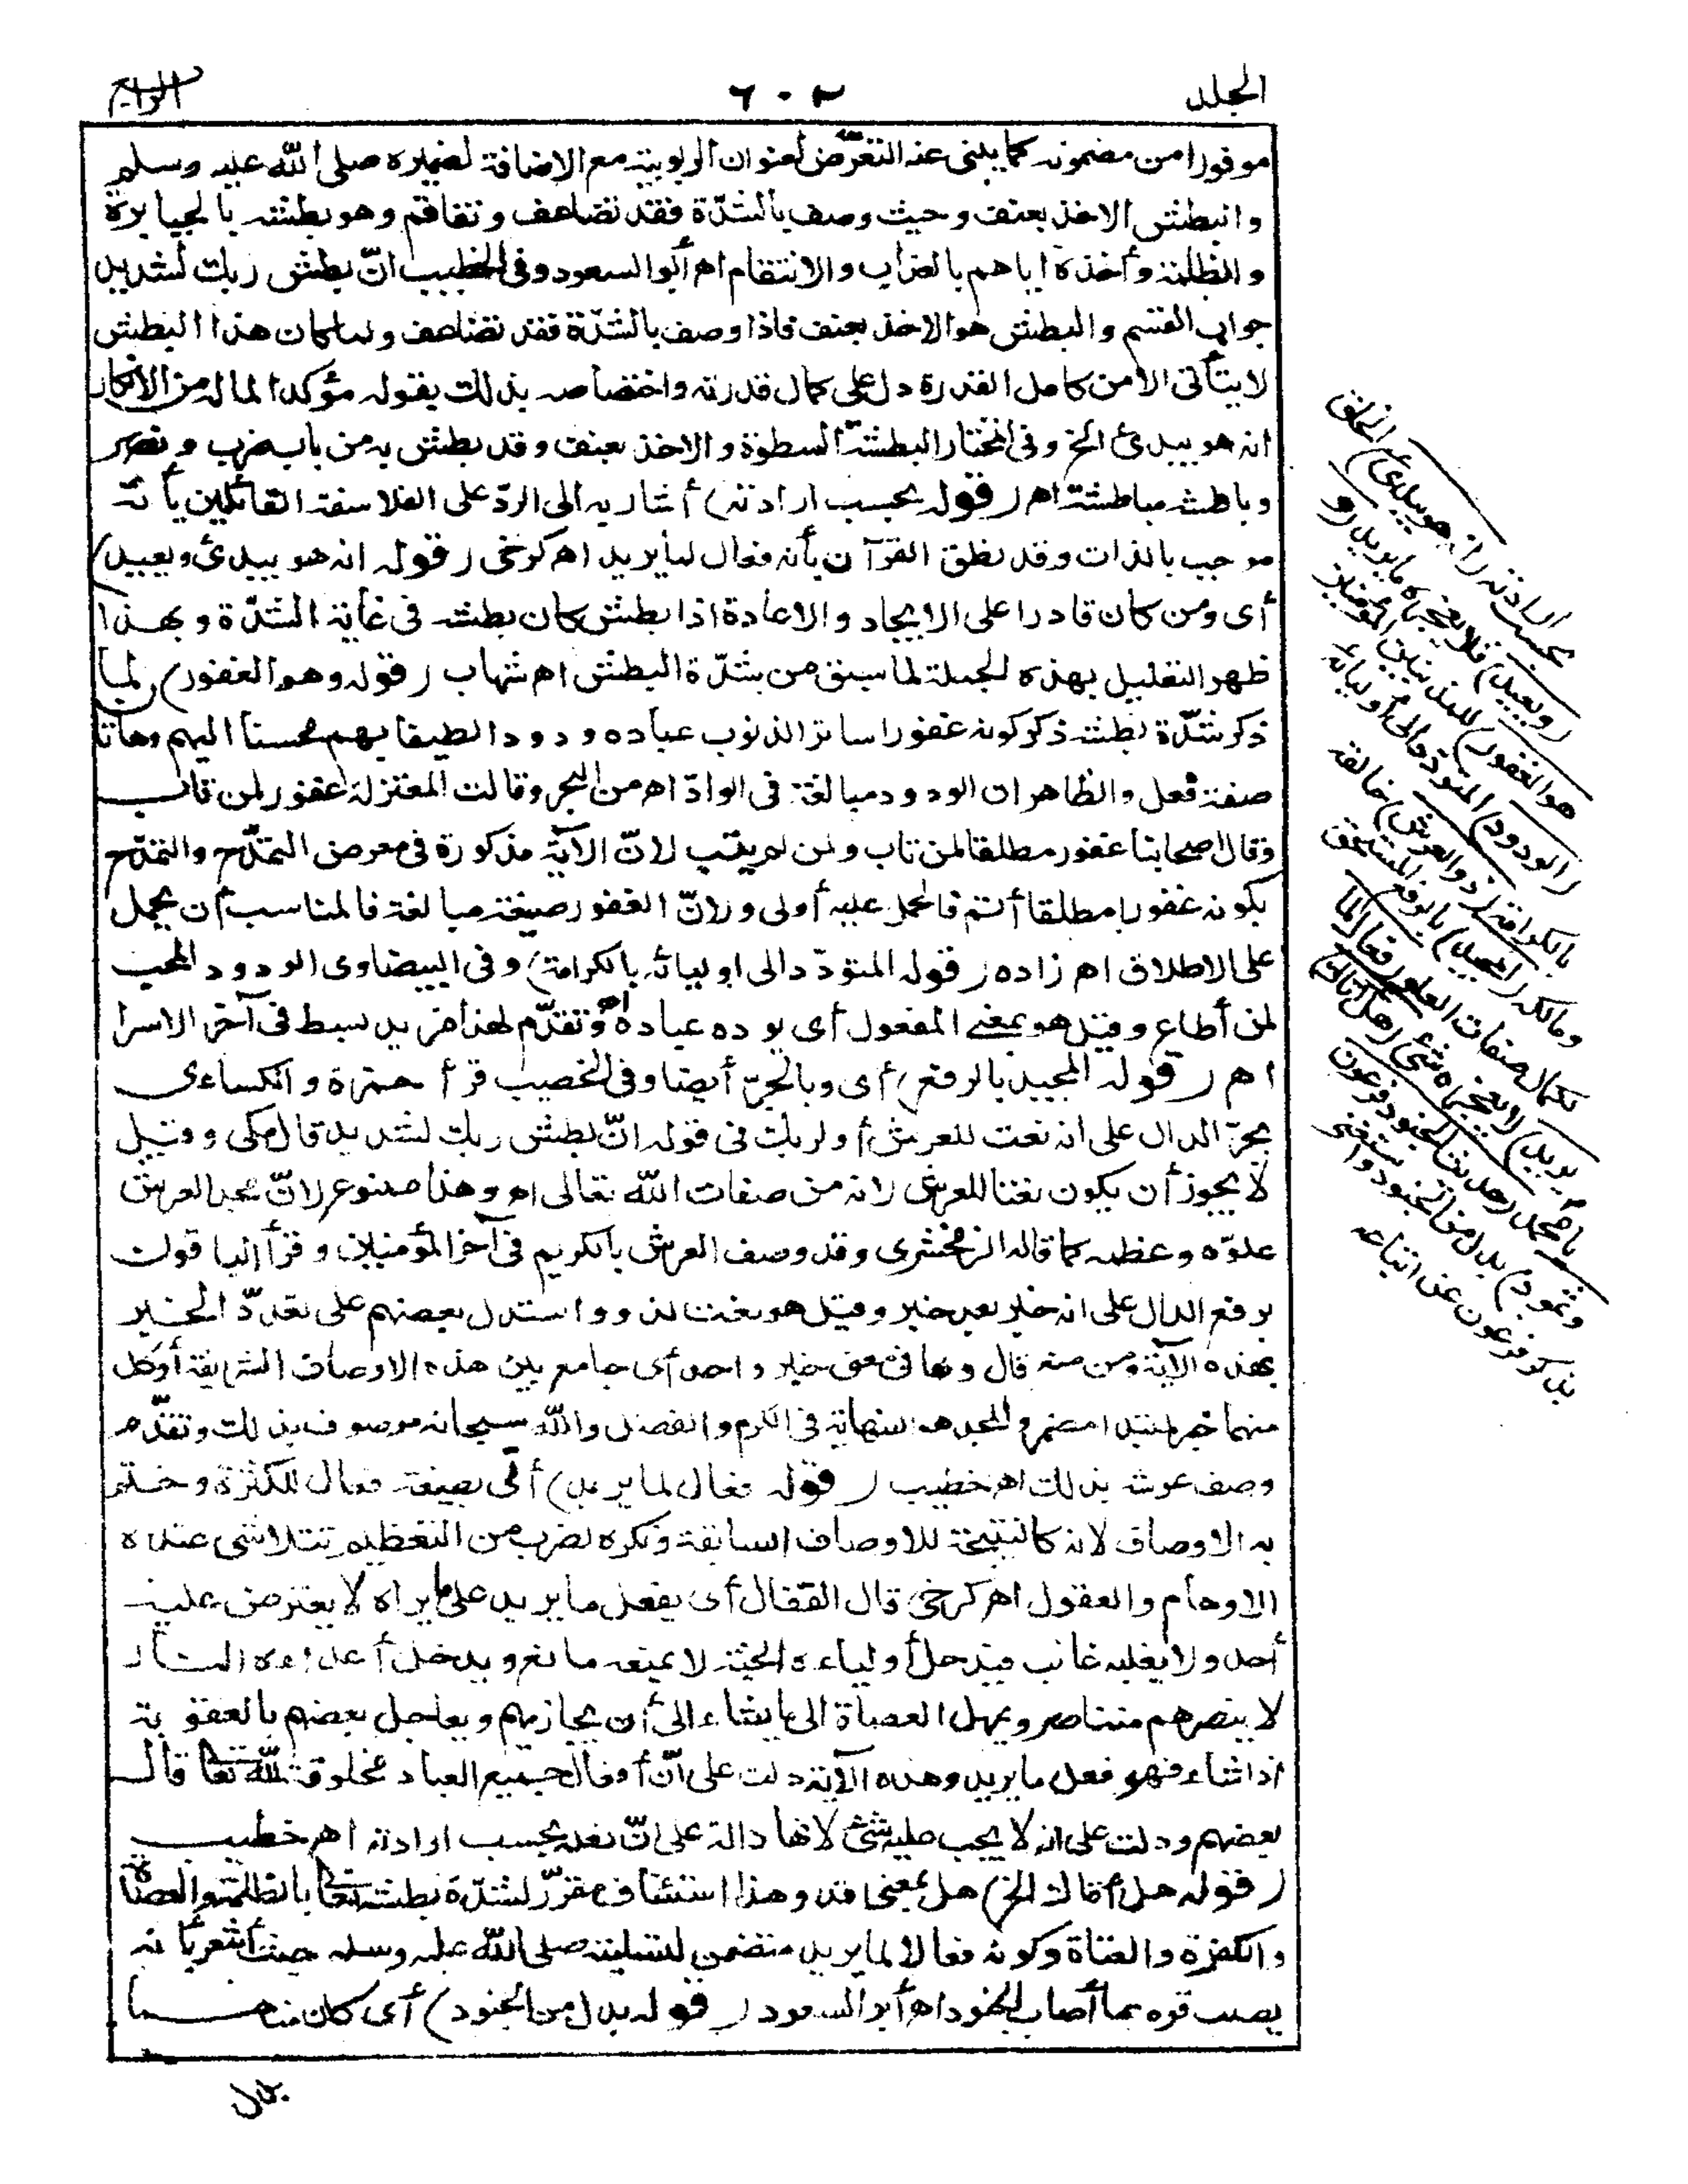 الجلد ٦٠٢ الرابع
موفورا من مضمونه كما ينبئ عنه التعرّض لعنوان الربوبية مع الاضافة لضميره صلى الله عليه وسلم
والبطش الاخذ بعنف وحيث وصف بالشدّة فقد تضاعف وتفاقم وهو بطشه بالجبابرة
والظلمة وأخذه اياهم بالعذاب والانتقام اه أبو السعود وفى الخطيب انّ بطش ربك لشديد
جواب القسم والبطش هو الاخذ بعنف فاذا وصف بالشدّة فقد تضاعف ولما كان هذا البطش
لا يتأتى الا من كامل القدرة دل على كمال قدرته واختصاصه بذلك بقوله مؤكدا لما له من الانكار
انه هو يبدئ الخ وفى المختار البطشة السطوة والاخذ بعنف وقد بطش به من باب ضرب ونصر
وباطشه مباطشة اه (قوله بحسب ارادته) أشار به الى الردّ على الفلاسفة القائلين بأنه
موجب بالذات وقد نطق القرآن بأنه فعال لما يريد اه كرخى (قوله انه هو يبدئ ويعيد)
أى ومن كان قادرا على الايجاد والاعادة اذا بطش كان بطشه فى غاية الشدّة وبهذا
ظهر التعليل بهذه الجملة لما سبق من شدّة البطش اه شهاب (قوله وهو الغفور) لما
ذكر شدّة بطشه ذكر كونه غفورا ساترا لذنوب عباده ودودا لطيفا بهم محسنا اليهم وهاتا
صفة فعل والظاهر ان الودود مبالغة فى الوادّ اه من البحر وقالت المعتزلة غفور لمن تاب
وقال اصحابنا غفور مطلقا لمن تاب ولمن لم يتب لانّ الآية مذكورة فى معرض التمدّح والتمدّح
بكونه غفورا مطلقا أتم فالحمل عليه أولى ولانّ الغفور صيغة مبالغة فالمناسب أن يحمل
على الاطلاق اه زاده (قوله المتودّد الى اوليائه بالكرامة) وفى البيضاوى الودود المحب
لمن أطاع وقيل هو بمعنى المفعول أى يوده عباده اه وتقدّم لهذا مزيد بسط فى آخر الاسرا
اه (قوله المجيد بالرفع) أى وبالجرّ أيضا وفى الخصيب قرأ حمزة والكساءى
بجرّ الدال على انه نعت للعرش أو لربك فى قوله انّ بطش ربك لشديد قال مكى وقيل
لا يجوز أن يكون نعتا للعرش لانه من صفات الله تعالى اه وهذا ممنوع لانّ مجد العرش
علوّه وعظمه كما قاله الزمخشرى وقد وصف العرش بالكريم فى آخر المؤمنين وقرأ الباقون
برفع الدال على انه خبر بعد خبر وقيل هو نعت لذو واستدل بعضهم على تعدّد الخبر
بهذه الآية ومن منعه قال وهما فى معنى خبر واحد أى جامع بين هذه الاوصاف الشريفة أو كل
منهما خبر لمبتدا مضمر والمجد هو النهاية فى الكرم والفضل والله سبحانه موصوف بذلك وتقدّم
وصف عرشه بذلك اه خطيب (قوله فعال لما يريد) أتى بصيغة فعال للكثرة وختم
به الاوصاف لانه كالنتيجة للاوصاف السابقة ونكره لضرب من التعظيم تتلاشى عنده
الاوهام والعقول اه كرخى قال القفال أى يفعل ما يريد على ما يراه لا يعترض عليه
أحد ولا يغلبه غالب فيدخل أولياءه الجنة لا يمنعه مانع ويدخل أعداءه النار
لا ينصرهم منه ناصر ويمهل العصاة الى ما يشاء الى أن يجازيهم ويعاجل بعضهم بالعقوبة
اذا شاء فهو فعل ما يريد وهذه الآية دلت على أنّ أفعال جميع العباد مخلوقة لله تعا قال
بعضهم ودلت على انه لا يجب عليه شئ لانها دالة على انّ فعله بحسب ارادته اه خطيب
(قوله هل أتاك الخ) هل بمعنى قد وهذا استئناف مقرّر لشدّة بطشه تعا بالظلمة والعصاة
والكفرة والعتاة وكونه فعالا لما يريد متضمن لتسليته صلى الله عليه وسلم حيث أشعر بأنه
يصيب قومه بما أصاب الجنود اه أبو السعود (قوله بدل من الجنود) أى كان منهما
بدل
بحسب ارادته (انه هو يبدئ) الخلق
(ويعيد) فلا يعجزه ما يريد (و
هو الغفور) للمذنبين المؤمنين
(الودود) المتودد الى أوليائه
بالكرامة (ذو العرش) خالقه
ومالكه (المجيد) بالرفع المستحق
لكمال صفات العلو (فعال لما
يريد) لا يعجزه شئ (هل أتاك)
يا محمد (حديث الجنود فرعون
وثمود) بدل من الجنود واستغنى
بذكر فرعون عن اتباعه